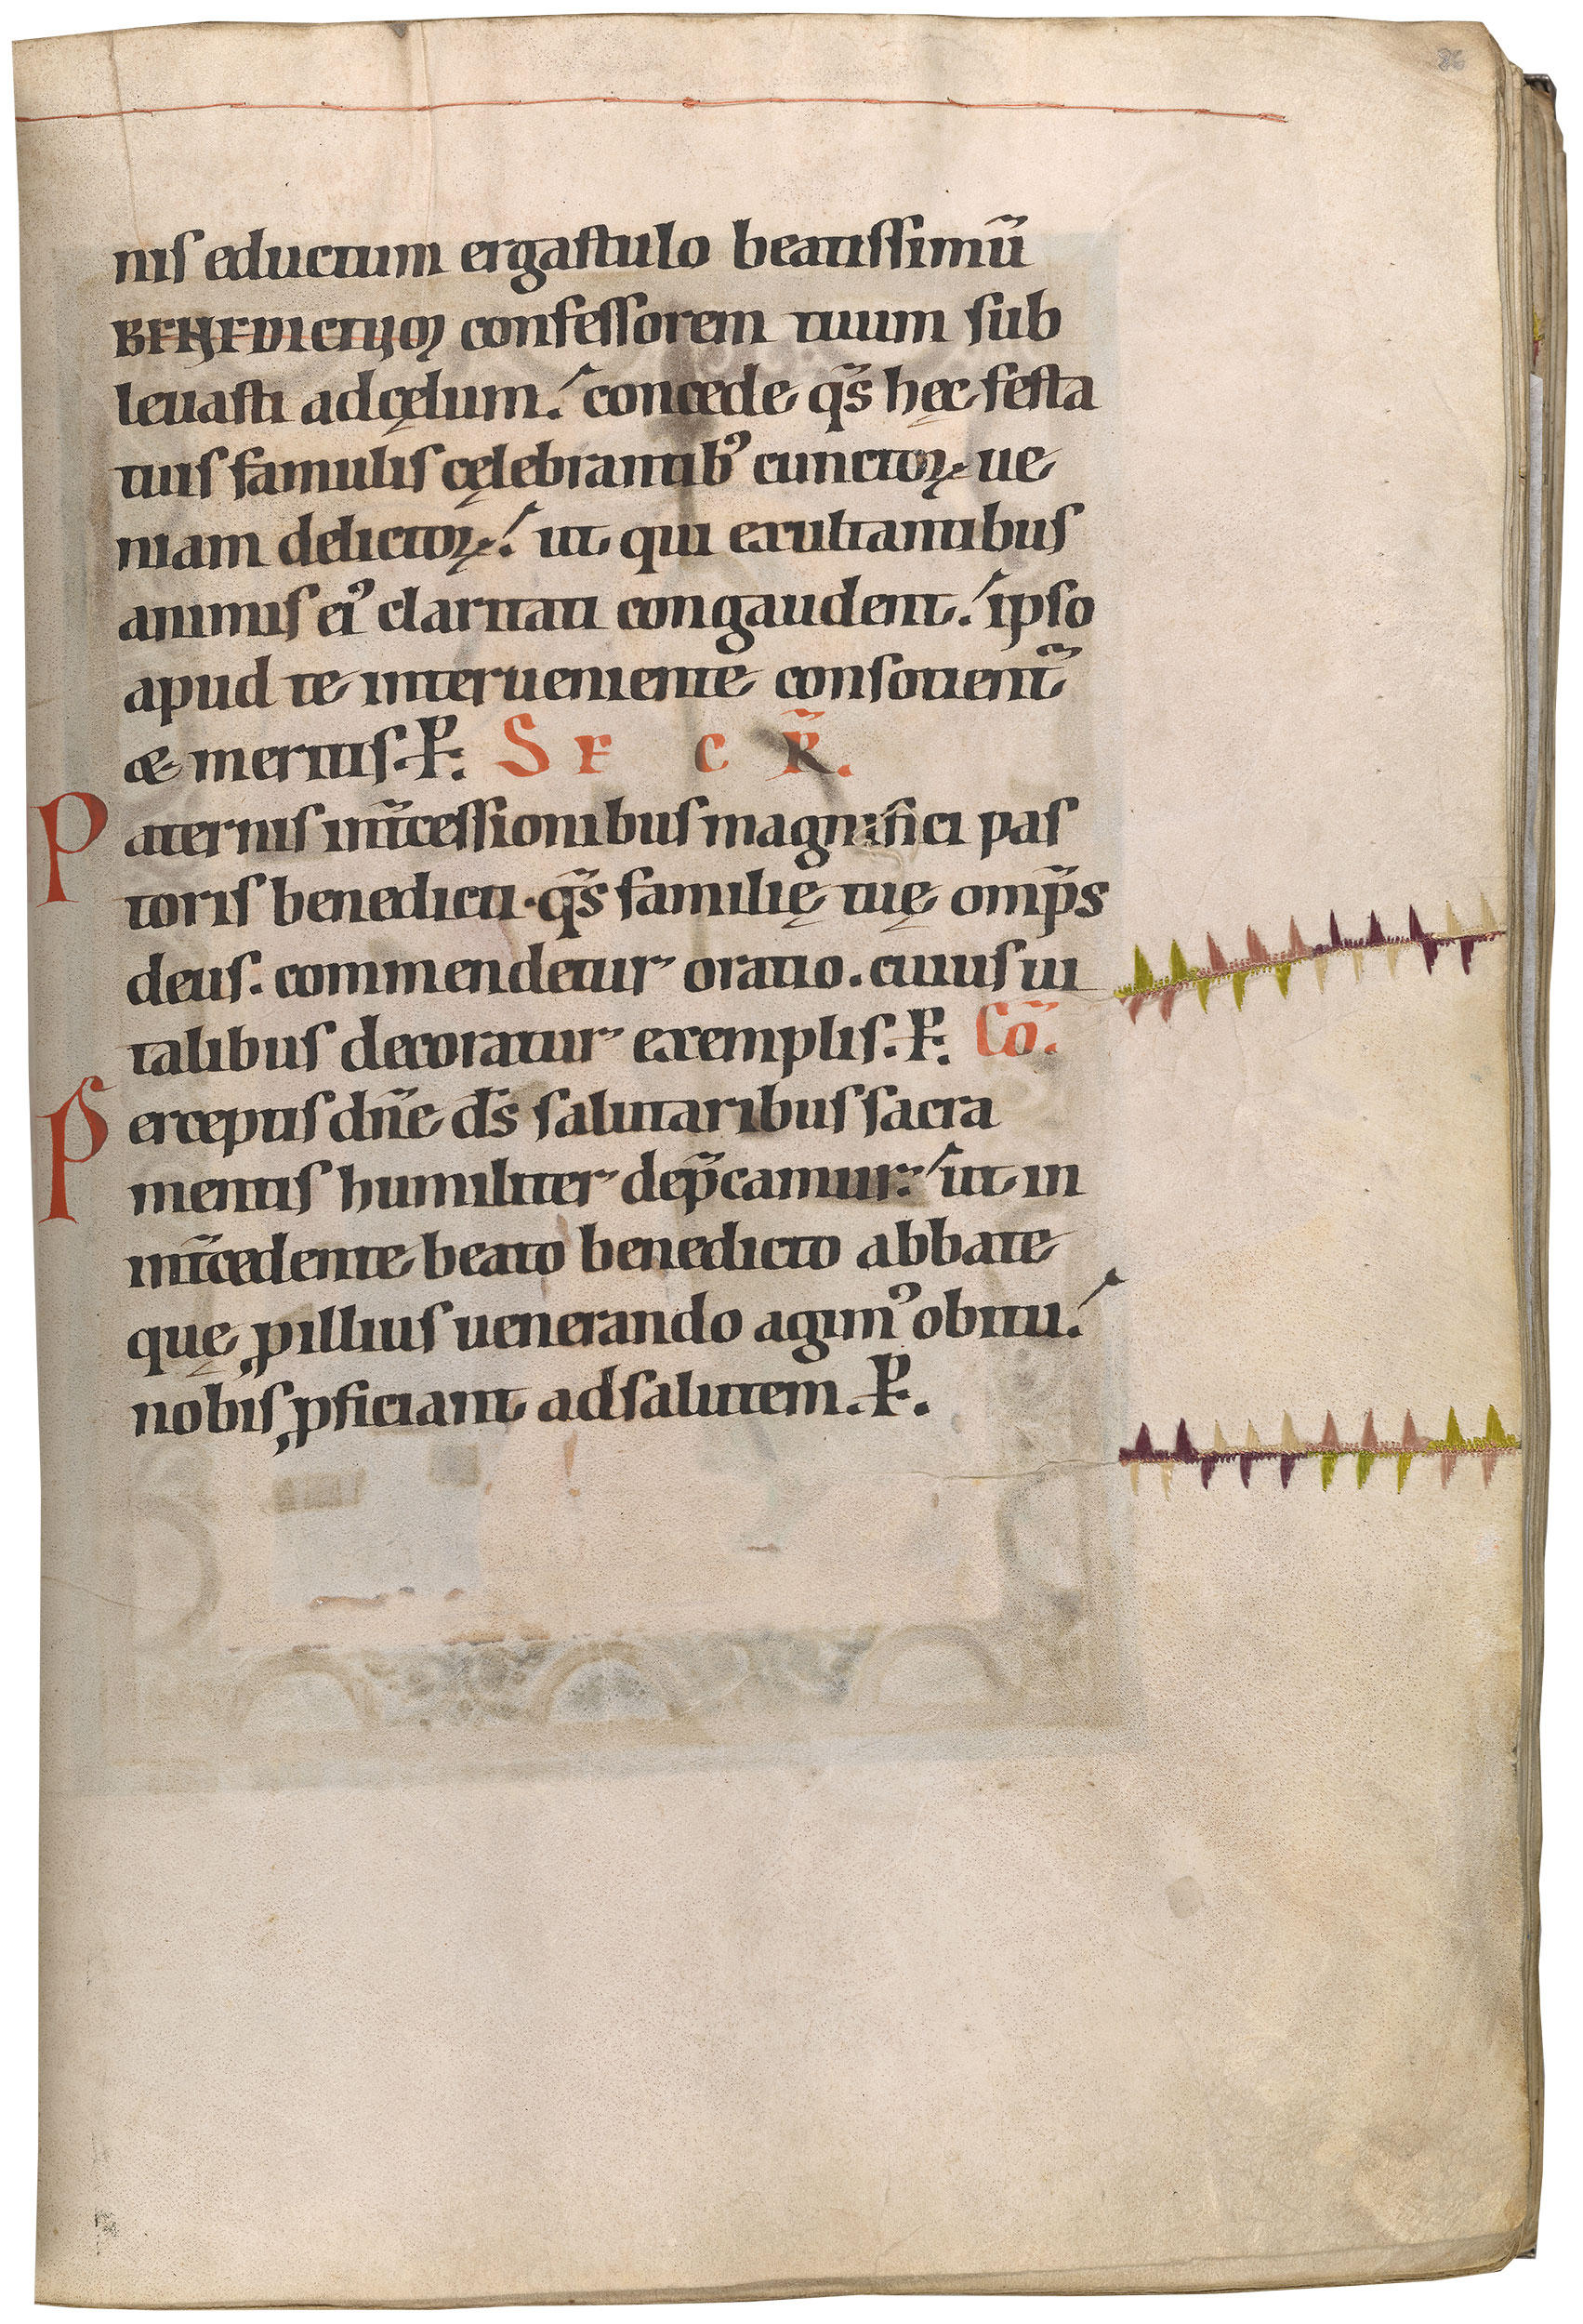 86
nis eductum ergastulo beatissimū
BENEDICTUM confessorem tuum sub
leuasti ad cęlum. concede qs̄ hęc festa
tuis famulis cęlebrantib᾿ cunctoꝝ ue
niam delictoꝝ. ut qui exultantibus
animis ei᾿ claritati congaudent. ipso
apud te interueniente consotient᷑
et meritis. P. SECR̄.
Paternis int̄cessionibus magnifici pas
toris benedicti · qs̄ familię tuę omp̄s
deus. commendetur oratio. cuius ui
talibus decoratur exemplis. P. Cō.
Perceptis dn̄e ds̄ salutaribus sacra
mentis humiliter dep̄camur. ut in
int̄cedente beato benedicto abbate
quę ꝓ illius uenerando agim᾿ obitu.
nobis ꝓficiant ad salutem. P.